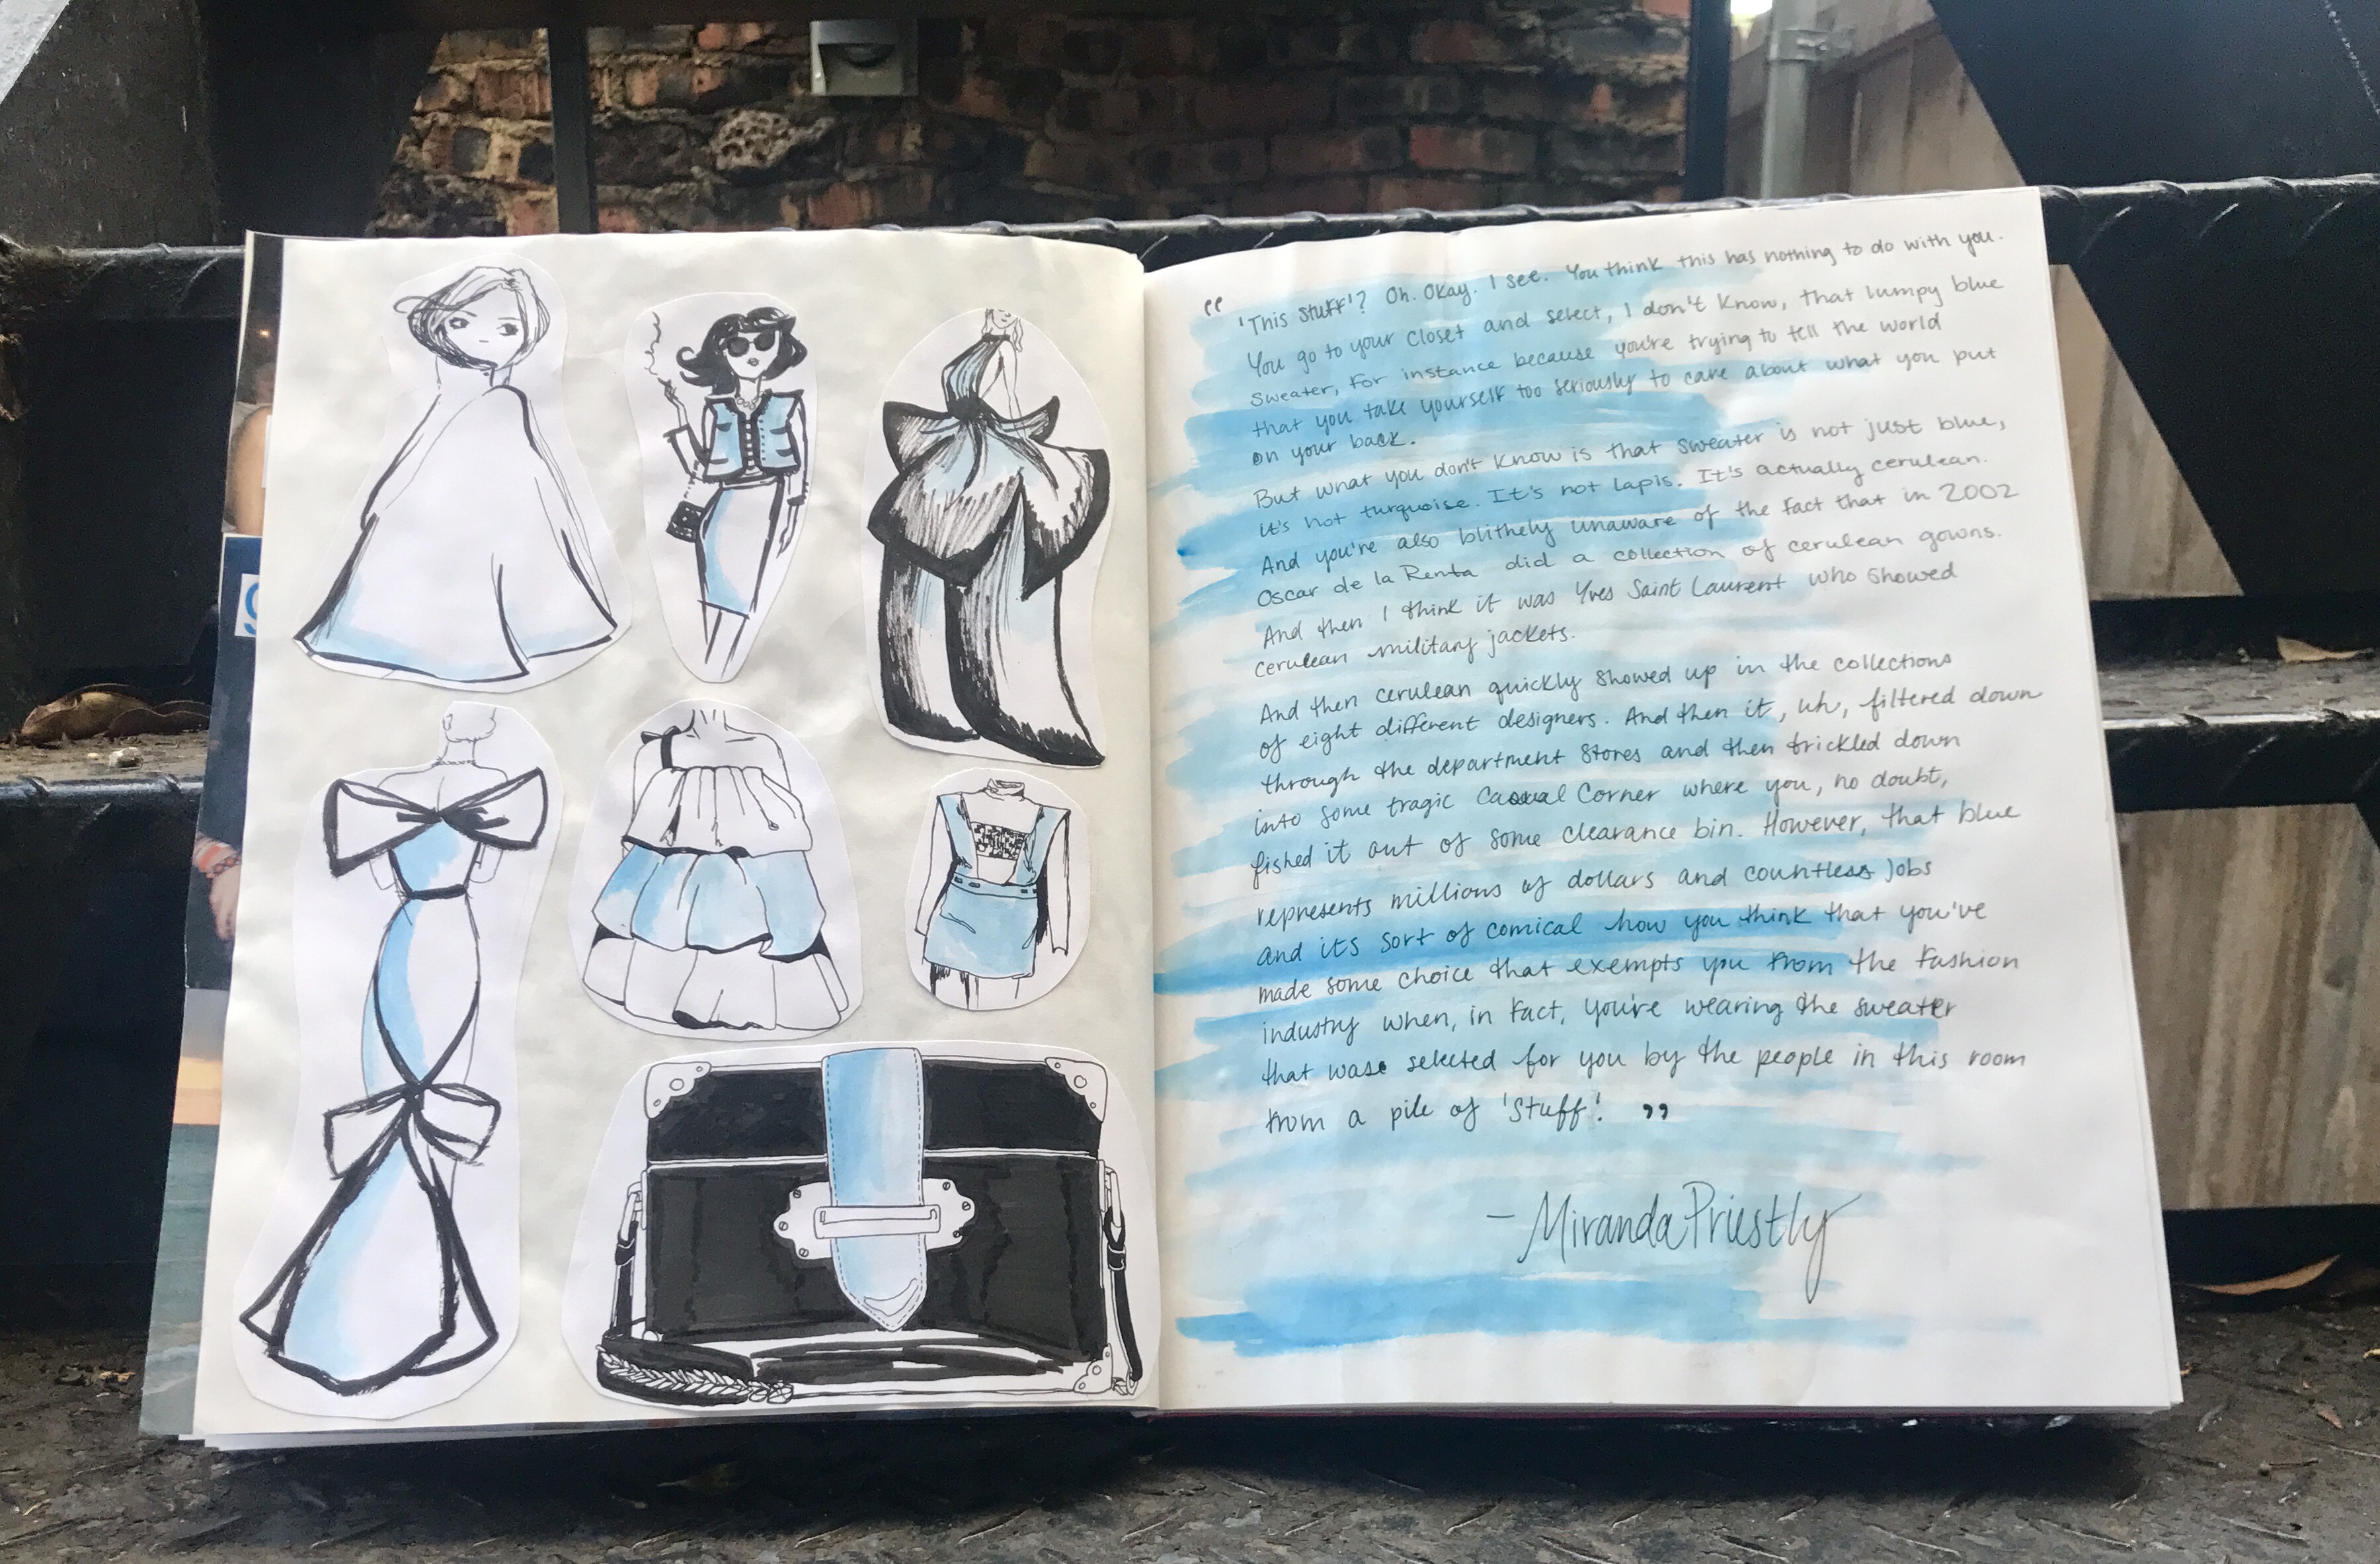 “ 'This stuff'? Oh. Okay. I see. You think this has nothing to do with you.
You go to your closet and select, I don't know, that lumpy blue
sweater, for instance because you're trying to tell the world
that you take yourself too seriously to care about what you put
on your back.
But what you don't know is that sweater is not just blue,
it's not turquoise. It's not lapis. It's actually cerulean.
And you're also blithely unaware of the fact that in 2002
Oscar de la Renta did a collection of cerulean gowns.
And then I think it was Yves Saint Laurent who showed
cerulean military jackets.
And then cerulean quickly showed up in the collections
of eight different designers. And then it, uh, filtered down
through the department stores and then trickled down
into some tragic Casual Corner where you, no doubt,
fished it out of some clearance bin. However, that blue
represents millions of dollars and countless jobs
and its sort of comical how you think that you've
made some choice that exempts you from the fashion
industry when, in fact, you're wearing the sweater
that was selected for you by the people in this room
from a pile of 'stuff'! ”
- Miranda Priestly